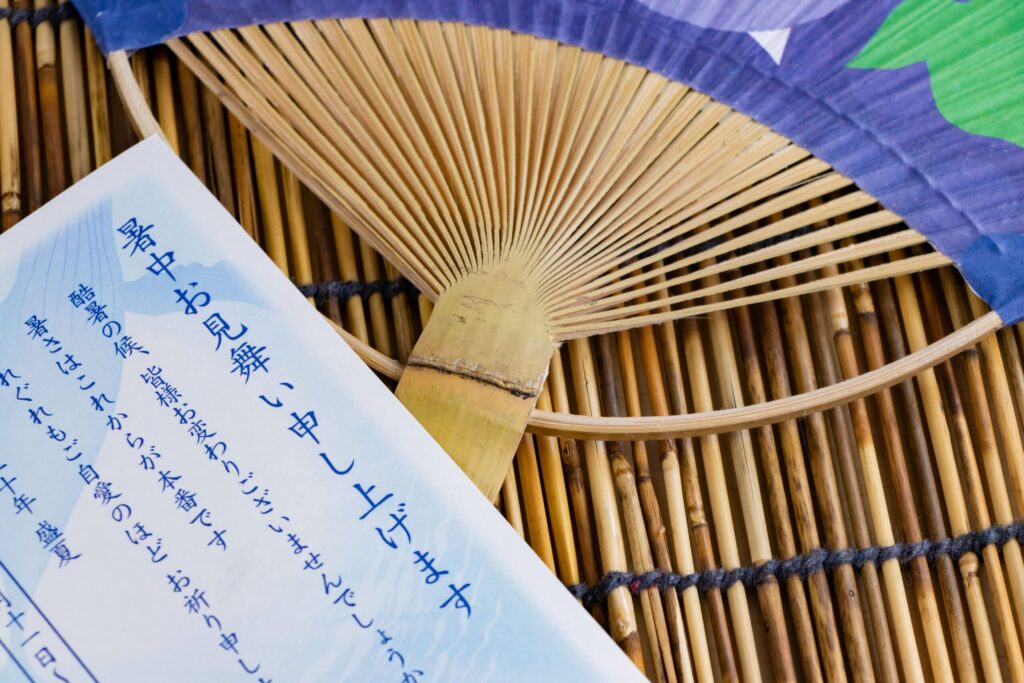 暑中お見舞い申し上げます
酷暑の候、皆様お変わりございませんでしょうか
暑さはこれからが本番です
れぐれもご自愛のほどお祈り申し
十年 盛夏
月十一日〜